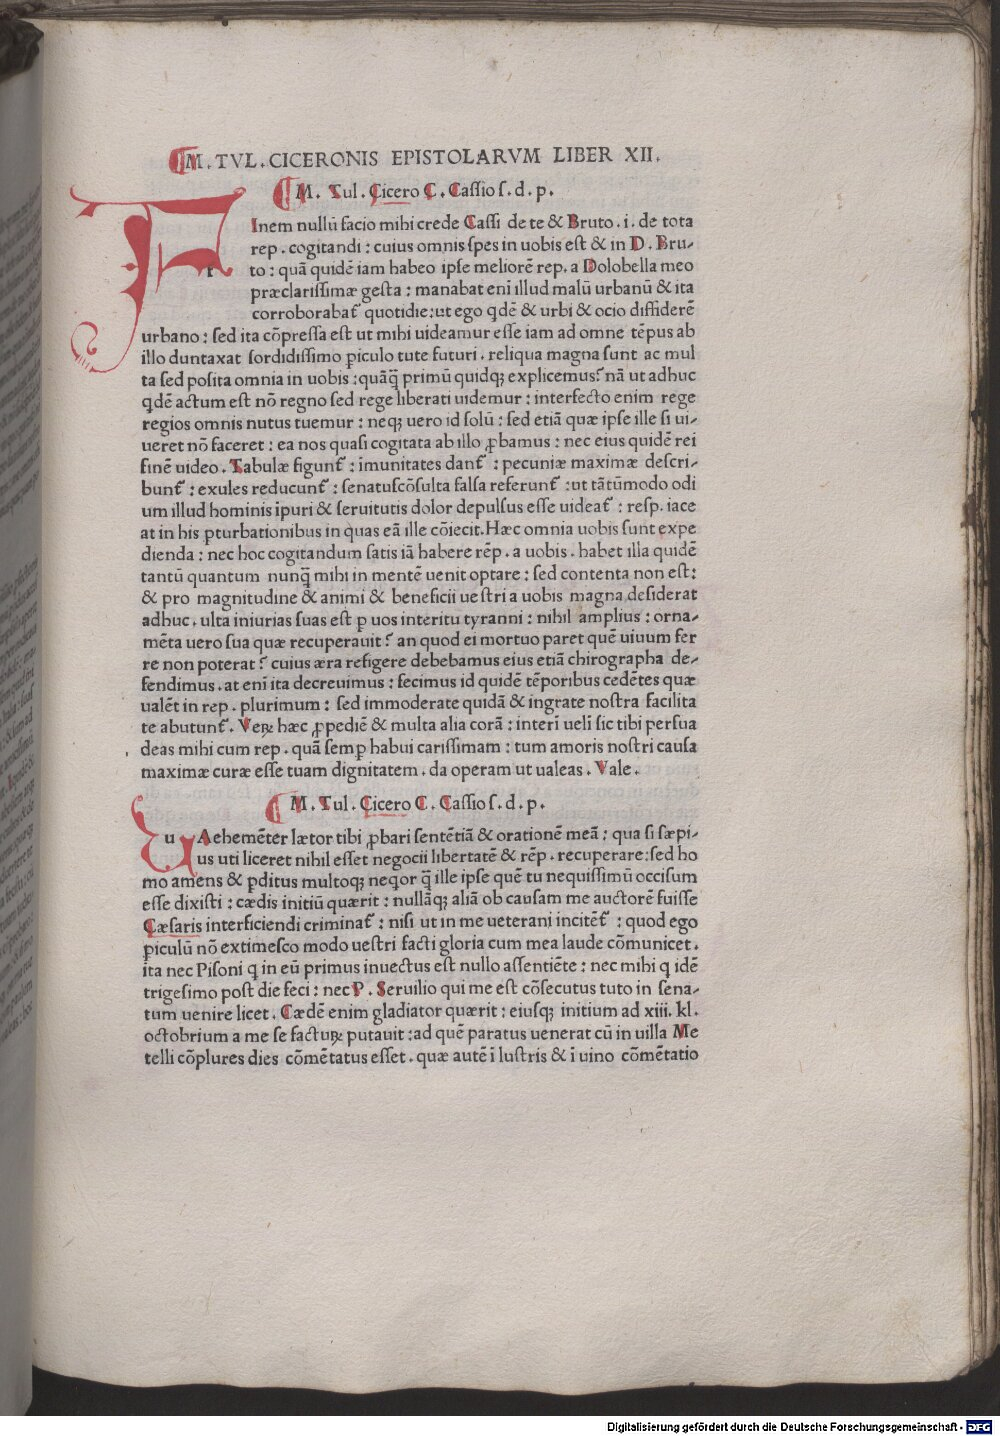 M. TVL. CICERONIS EPISTOLARVM LIBER XII.
M. Tul. Cicero C. Cassio s. d. p.
FInem nullū facio mihi crede Cassi de te & Bruto. i. de tota
rep. cogitandi: cuius omnis spes in uobis est & in D. Bru-
to: quā quidē iam habeo ipse meliorē rep. a Dolobella meo
præclarissimæ gesta: manabat enī illud malū urbanū & ita
corroborabat᷑ quotidie: ut ego qdē & urbi & ocio diffiderē
urbano: sed ita cōpressa est ut mihi uideamur esse iam ad omne tēpus ab
illo duntaxat sordidissimo ꝑiculo tute futuri. reliqua magna sunt ac mul
ta sed posita omnia in uobis: quāq̄ primū quidqꝫ explicemus? nā ut adhuc
qdē actum est nō regno sed rege liberati uidemur: interfecto enim rege
regios omnis nutus tuemur: neqꝫ uero id solū: sed etiā quæ ipse ille si ui-
ueret nō faceret: ea nos quasi cogitata ab illo ꝓbamus: nec eius quidē rei
finē uideo. Tabulæ figunt᷑: īmunitates dant᷑: pecuniæ maximæ descri-
bunt᷑: exules reducunt᷑: senatuscōsulta falsa referunt᷑: ut tātūmodo odi
um illud hominis īpuri & seruitutis dolor depulsus esse uideat᷑: resp. iace
at in his ꝑturbationibus in quas eā ille cōiecit. Hæc omnia uobis sunt expe
dienda: nec hoc cogitandum satis iā habere rēp. a uobis. habet illa quidē
tantū quantum nunq̄ mihi in mentē uenit optare: sed contenta non est:
& pro magnitudine & animi & beneficii uestri a uobis magna desiderat
adhuc. ulta iniurias suas est ꝑ uos interitu tyranni: nihil amplius: orna-
mēta uero sua quæ recuperauit? an quod ei mortuo paret quē uiuum fer
re non poterat? cuius æra refigere debebamus eius etiā chirographa de-
fendimus. at enī ita decreuimus: fecimus id quidē tēporibus cedētes quæ
ualēt in rep. plurimum: sed immoderate quidā & ingrate nostra facilita
te abutunt᷑. Veꝝ hæc ꝓpediē & multa alia corā: interī ueli sic tibi persua
deas mihi cum rep. quā semꝑ habui carissimam: tum amoris nostri causa
maximæ curæ esse tuam dignitatem. da operam ut ualeas. Vale.
M. Tul. Cicero C. Cassio s. d. p.
u Aehemēter lætor tibi ꝓbari sentētiā & orationē meā: qua si sæpi-
us uti liceret nihil esset negocii libertatē & rēp. recuperare: sed ho
mo amens & ꝑditus multoqꝫ neqor q̄ ille ipse quē tu nequissimū occisum
esse dixisti: cædis initiū quærit: nullāqꝫ aliā ob causam me auctorē fuisse
Cæsaris interficiendi criminat᷑: nisi ut in me ueterani incitēt᷑: quod ego
ꝑiculū nō extimesco modo uestri facti gloria cum mea laude cōmunicet.
ita nec Pisoni q in eū primus inuectus est nullo assentiēte: nec mihi q idē
trigesimo post die feci: nec P. Seruilio qui me est cōsecutus tuto in sena-
tum uenire licet. Cædē enim gladiator quærit: eiusqꝫ initium ad xiii. kl.
octobrium a me se factuꝝ putauit: ad quē paratus uenerat cū in uilla Me
telli cōplures dies cōmētatus esset. quæ autē ī lustris & ī uino cōmētatio
Digitalisierung gefördert durch die Deutsche Forschungsgemeinschaft - DFG